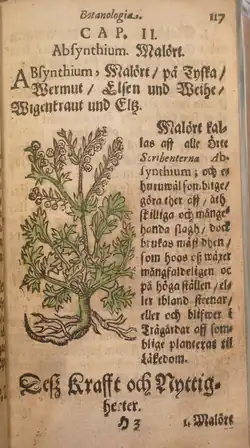 Botanologiæ. 117
CAP. II.
Absynthium. Malört.
ABsynthium, Malört/ på Tyska/
Wermut/ Elsen und Weihe/
Wigenkraut und Eltz.
Malört kal-
las aff alle Örte
Scribenterna Ab-
synthium; och es
huruwäl som bitge/
göra ther äff/ äth
skilliga och månge-
handa slagh/ dock
brukas mäst dhen/
som hoos oß wäxer
mångfaldeligen oc
på höga ställen/ el-
ler ibland steenar/
eller och blifwer i
Trägårdar aff som-
blige planterat til
Läkedom.
Deß Krafft och Nyttig-
heeter.
H 3 1. Malört